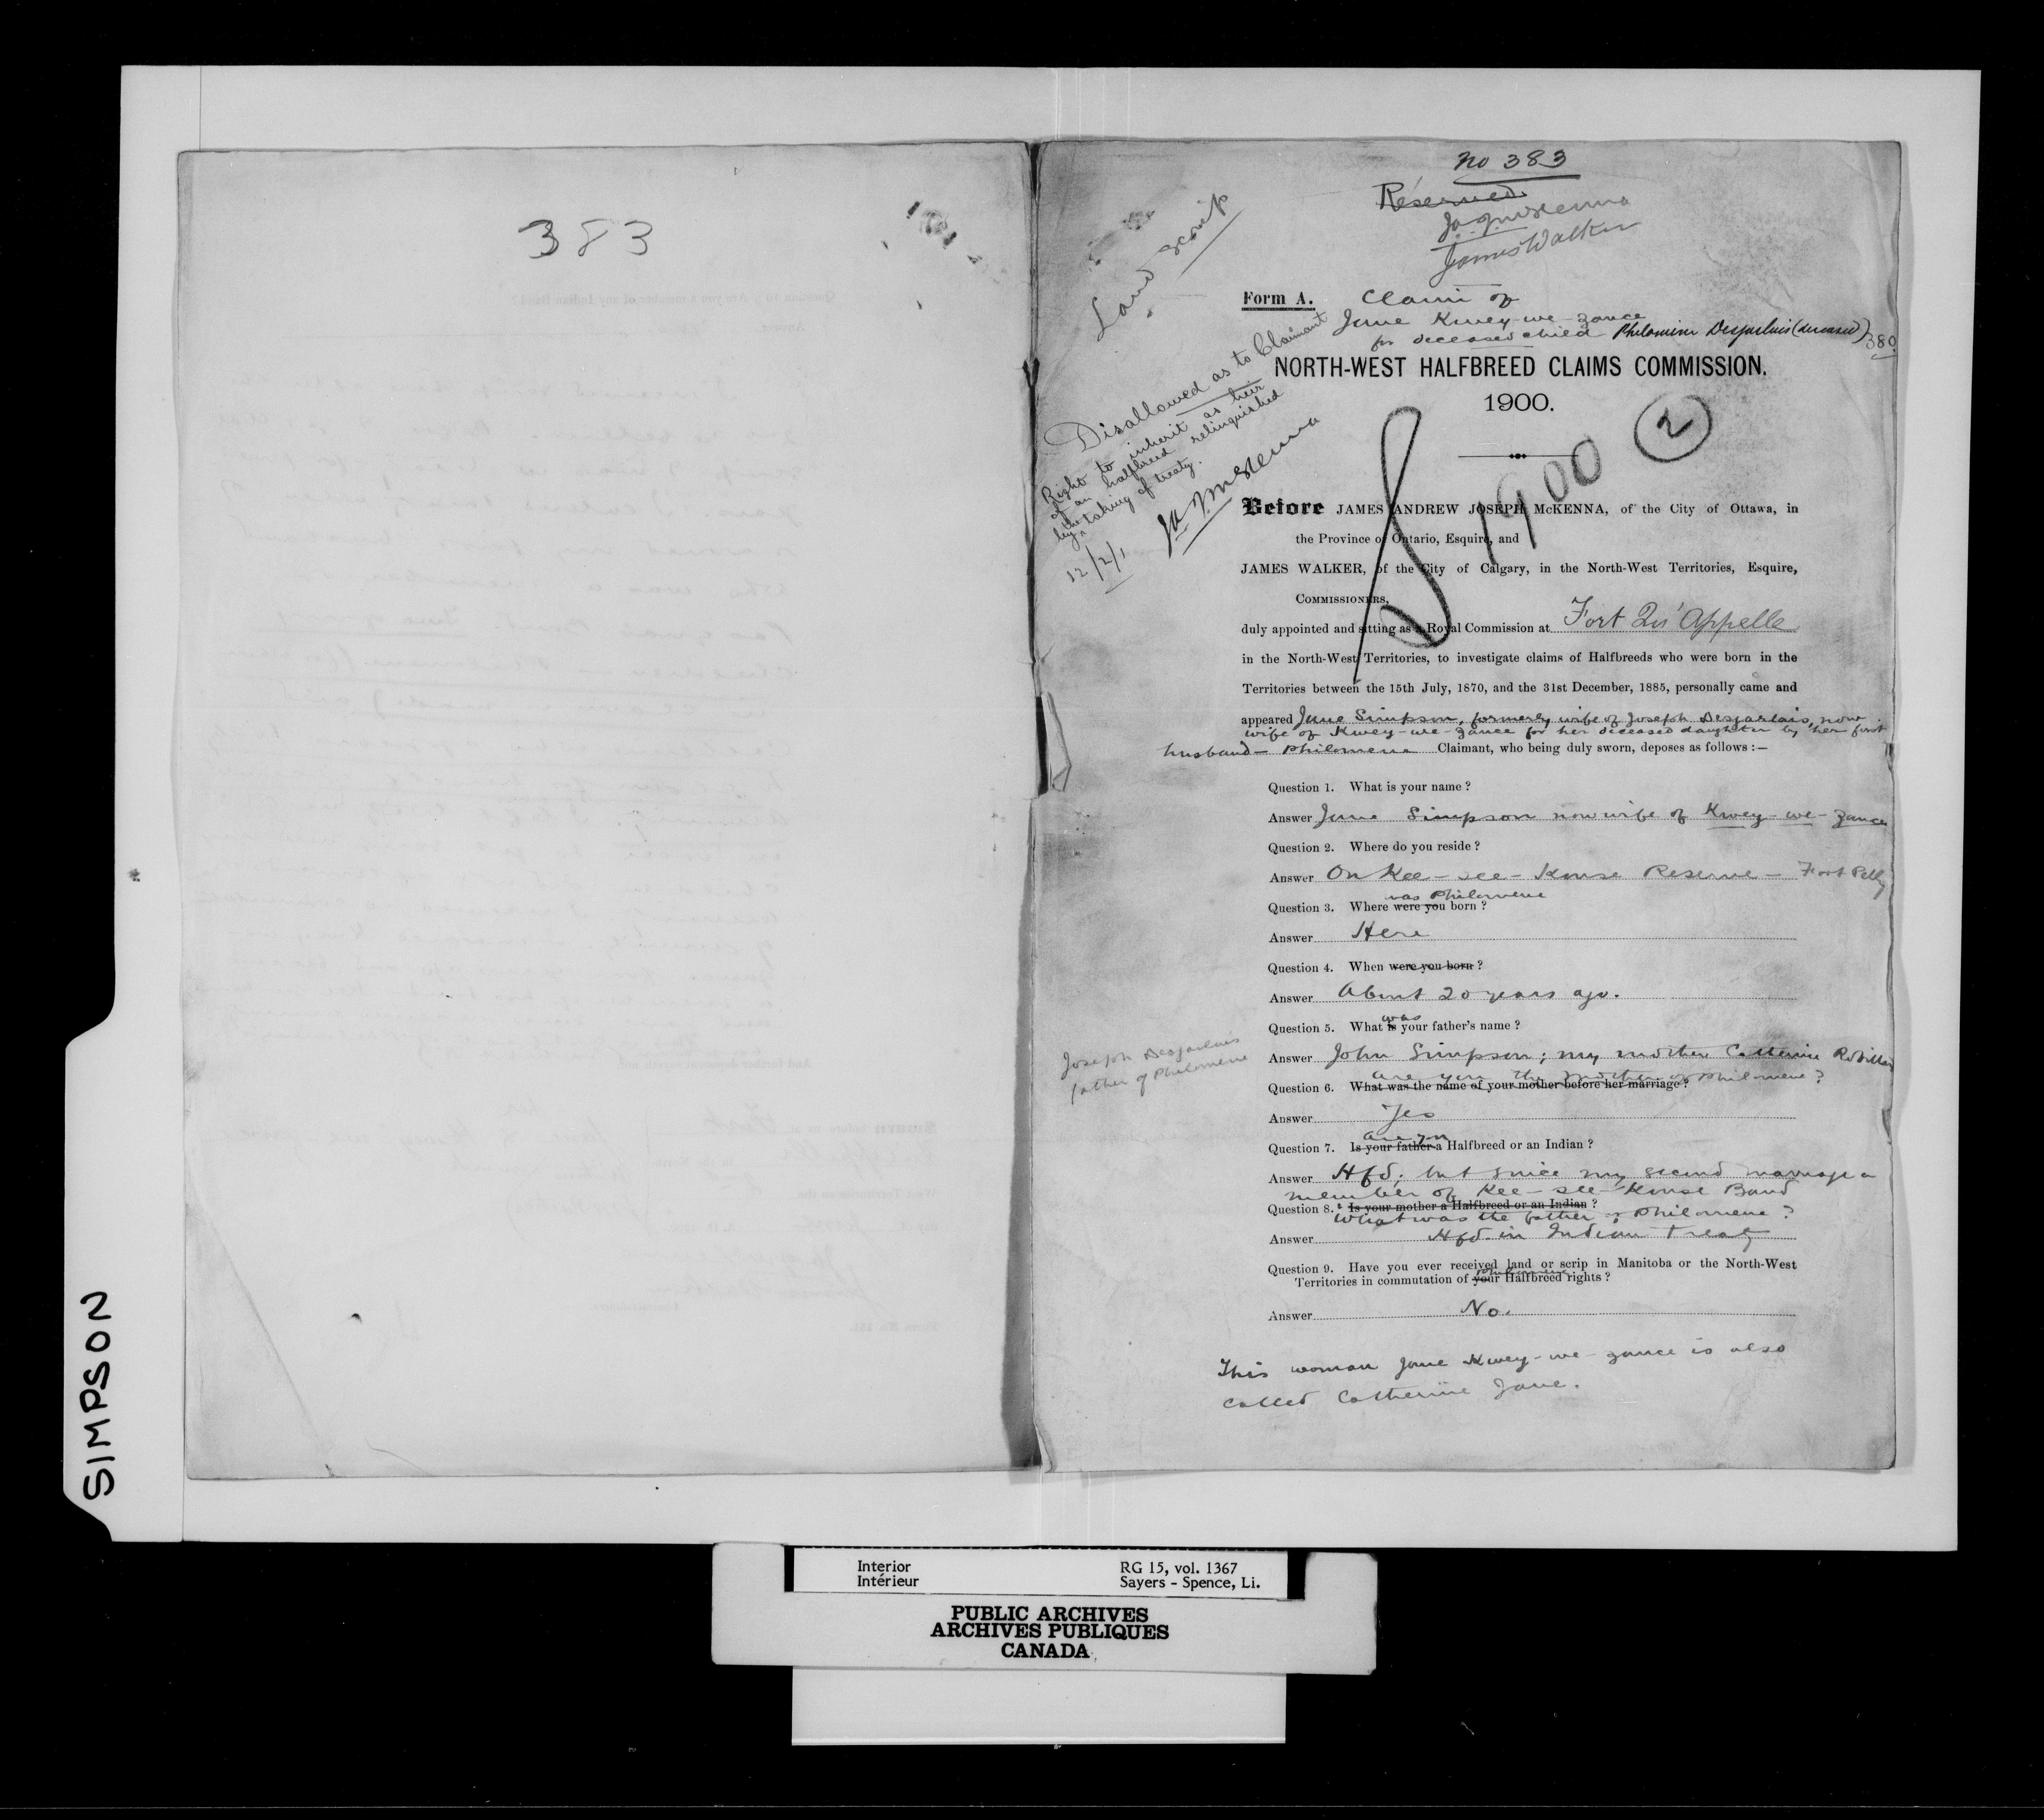 383
no 383
Reserved
J.A.J. McKenna
James Walker
Land Scrip
Form A. Claim of
Jane Kwey-we-zance
for deceased child Philomine Desjarlais (deceased) 380
NORTH-WEST HALFBREED CLAIMS COMMISSION.
1900.
2
1900
Disallowed as to Claimant
Right to inherit as heir
of an halfbreed relinquished
by the taking of treaty.
J.A.J. McKenna
12/2/1
Before JAMES ANDREW JOSEPH McKENNA, of the City of Ottawa, in
the Province of Ontario, Esquire, and
JAMES WALKER, of the City of Calgary, in the North-West Territories, Esquire,
COMMISSIONERS,
duly appointed and sitting as a Royal Commission at Fort Qu'Appelle
in the North-West Territories, to investigate claims of Halfbreeds who were born in the
Territories between the 15th July, 1870, and the 31st December, 1885, personally came and
appeared Jane Simpson, formerly wife of Joseph Desjarlais, now
wife of Kwey-we-zance for her deceased daughter by her first
husband - Philomene Claimant, who being duly sworn, deposes as follows :—
Question 1. What is your name ?
Answer Jane Simpson now wife of Kwey-we-zance
Question 2. Where do you reside ?
Answer On Kee-see-Kouse Reserve - Fort Pelly
was Philomene
Question 3. Where were you born ?
Answer Here
Question 4. When were you born ?
Answer About 20 years ago.
was
Question 5. What is your father's name ?
Answer John Simpson; my mother Catherine Robillard
Joseph Desjarlais
father of Philomene
are you the mother of Philomene ?
Question 6. What was the name of your mother before her marriage ?
Answer Yes
are you
Question 7. Is your father a Halfbreed or an Indian ?
Answer Hfd; but since my second marriage a
member of Kee-see-Kouse Band
Question 8. Is your mother a Halfbreed or an Indian ?
What was the father of Philomene ?
Answer Hfd. in Indian Treaty
Question 9. Have you ever received land or scrip in Manitoba or the North-West
Philomene
Territories in commutation of your Halfbreed rights ?
Answer No.
This woman Jane Kwey-we-zance is also
called Catherine Jane.
SIMPSON
Interior RG 15, vol. 1367
Intérieur Sayers - Spence, Li.
PUBLIC ARCHIVES
ARCHIVES PUBLIQUES
CANADA